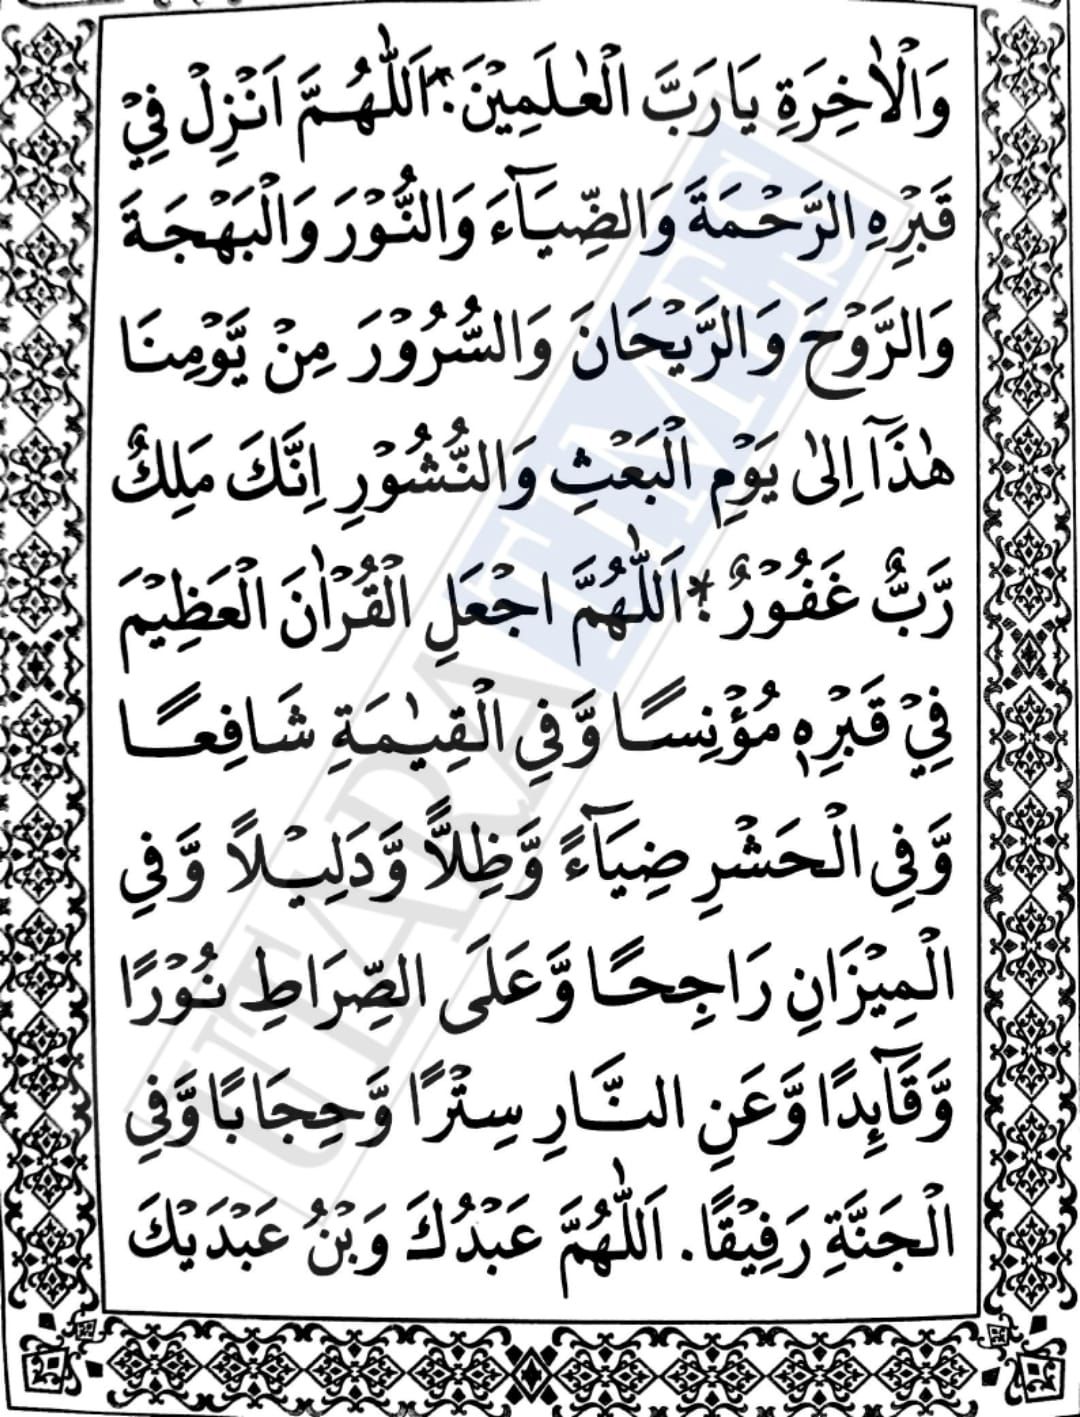 وَالْاٰخِرَةِ يَارَبَّ الْعٰلَمِيْنَ.* اَللّٰهُمَّ اَنْزِلْ فِيْ
قَبْرِهِ الرَّحْمَةَ وَالضِّيَآءَ وَالنُّوْرَ وَالْبَهْجَةَ
وَالرَّوْحَ وَالرَّيْحَانَ وَالسُّرُوْرَ مِنْ يَّوْمِنَا
هٰذَآ اِلىٰ يَوْمِ الْبَعْثِ وَالنُّشُوْرِ اِنَّكَ مَلِكٌ
رَّبٌّ غَفُوْرٌ.* اَللّٰهُمَّ اجْعَلِ الْقُرْاٰنَ الْعَظِيْمَ
فِيْ قَبْرِهٖ مُؤْنِسًا وَّفِي الْقِيٰمَةِ شَافِعًا
وَّفِي الْحَشْرِ ضِيَآءً وَّظِلاًّ وَّدَلِيْلاً وَّفِي
الْمِيْزَانِ رَاجِحًا وَّعَلَى الصِّرَاطِ نُوْرًا
وَّقَآئِدًا وَّعَنِ النَّارِ سِتْرًا وَّحِجَابًا وَّفِي
الْجَنَّةِ رَفِيْقًا. اَللّٰهُمَّ عَبْدُكَ وَبْنُ عَبْدَيْكَ
UTARATIMES